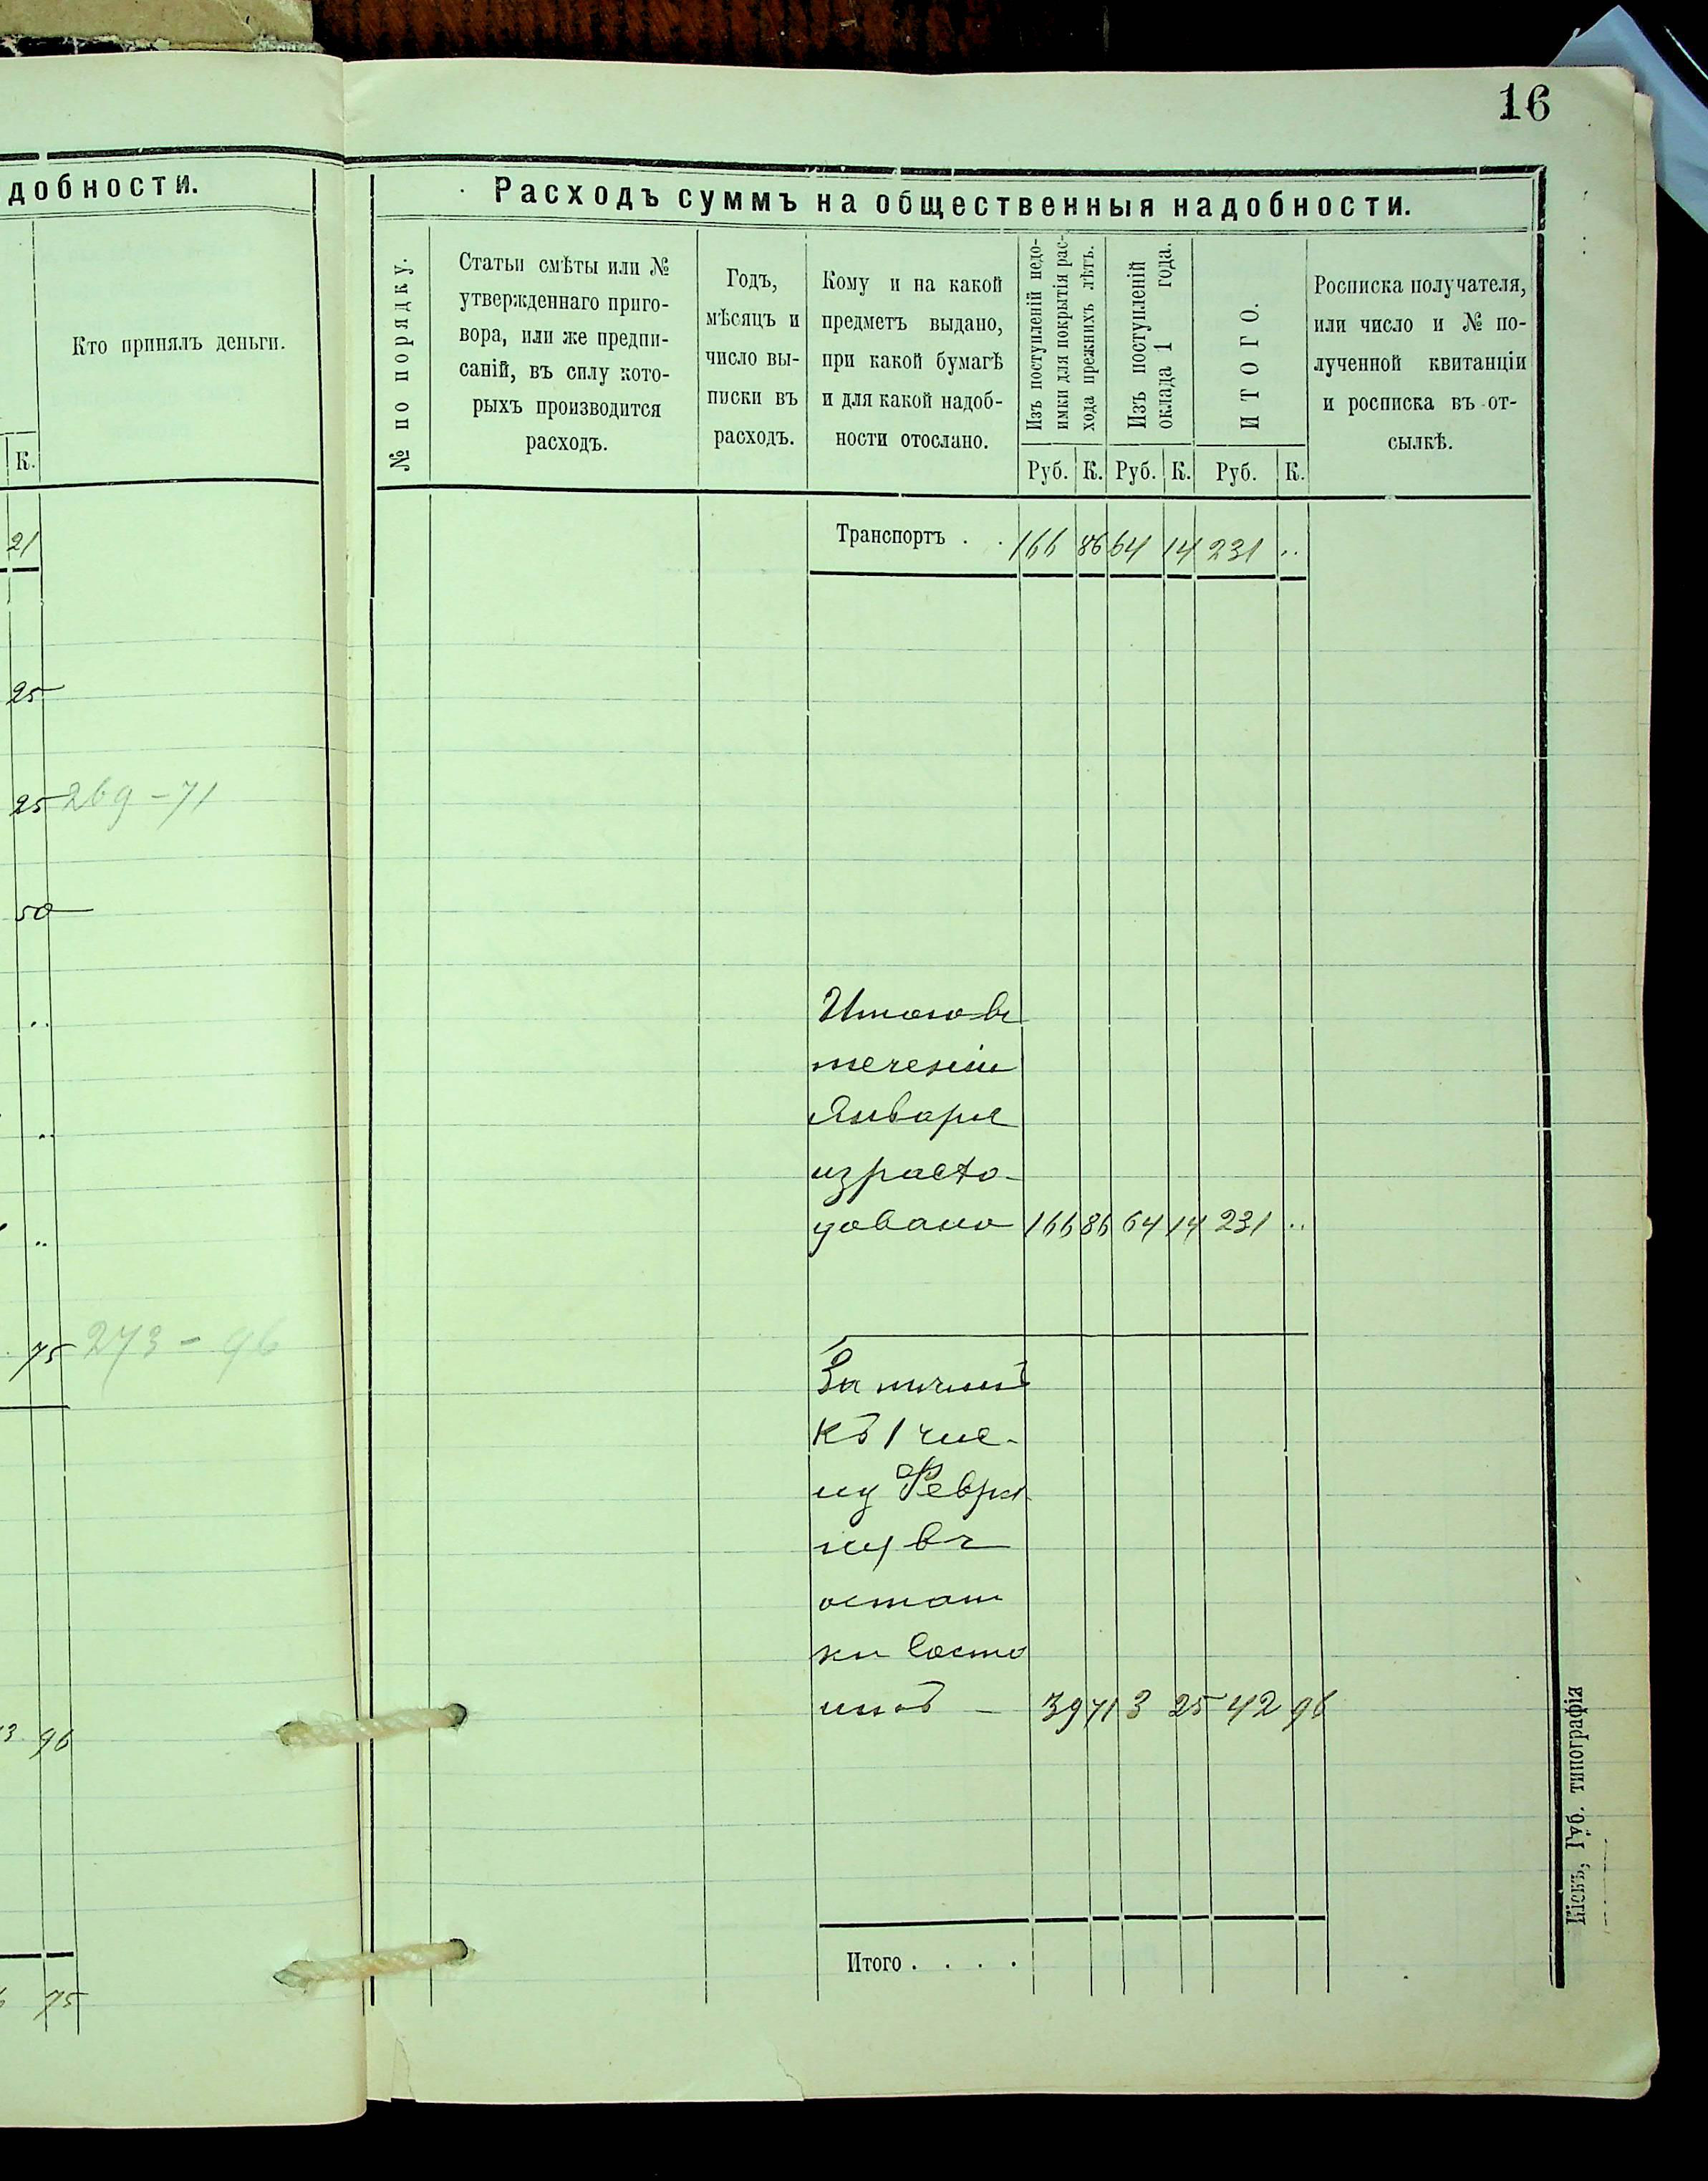 16
добности.
К.
Кто принялъ деньги.
21
25
25 269-71
50
..
..
..
75 273-96
3 96
75
Расходъ суммъ на общественныя надобности.
№ по порядку.
Статьи смѣты или №
утвержденнаго приго-
вора, или же предпи-
саній, въ силу кото-
рыхъ производится
расходъ.
Годъ,
мѣсяцъ и
число вы-
писки въ
расходъ.
Кому и на какой
предметъ выдано,
при какой бумагѣ
и для какой надоб-
ности отослано.
Изъ поступленій недо-
имки для покрытія рас-
хода прежнихъ лѣтъ.
Изъ поступленій
оклада 1 года.
ИТОГО.
Росписка получателя,
или число и № по-
лученной квитанціи
и росписка въ от-
сылкѣ.
Руб. К. Руб. К. Руб. К.
Транспортъ . . 166 86 64 14 231 ..
Итого въ
теченіи
Января
израсхо-
довано 166 86 64 14 231 ..
За тѣмъ
Къ 1 чис-
лу Февра
ля въ
остат
ки состо
итъ — 39 71 3 25 42 96
Итого . . . .
Губ. типографія